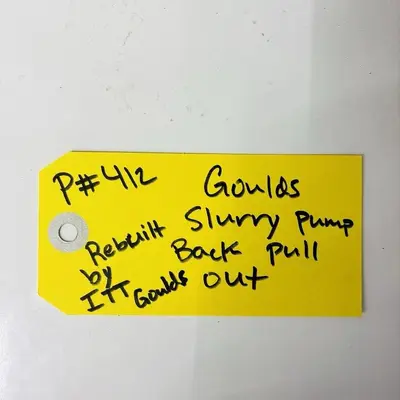 P#412
Goulds
Slurry Pump
Back Pull
Out
Rebuilt
by
ITT Goulds